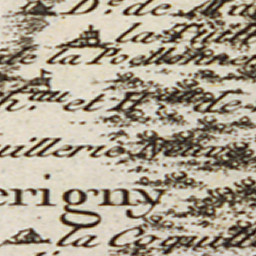 D.e de Ma
la Tuill
de la Poellonne
Ch.au et H. de
uillerie
erigny
la Coquille